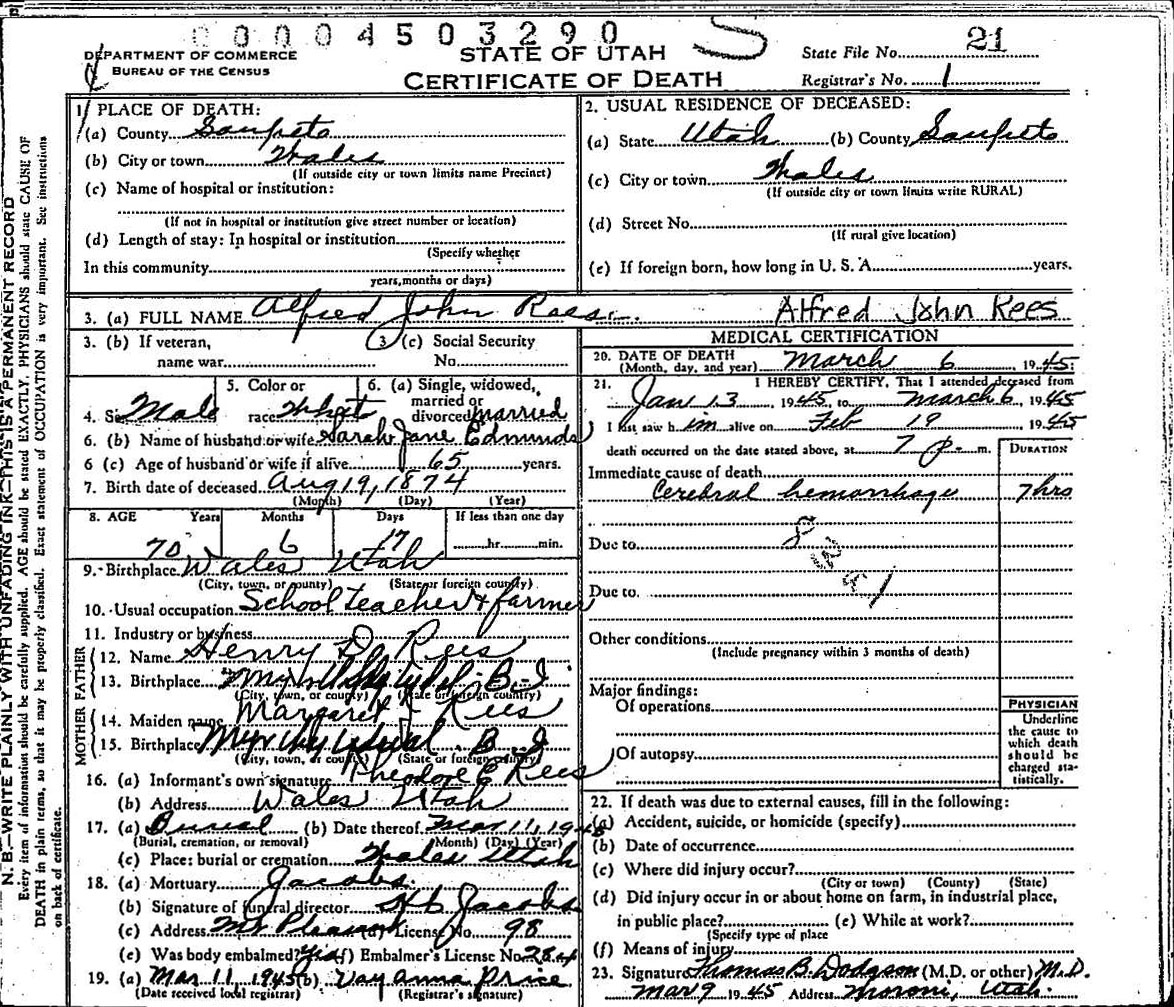 0004503290
DEPARTMENT OF COMMERCE
BUREAU OF THE CENSUS
STATE OF UTAH
CERTIFICATE OF DEATH
State File No. 21
Registrar's No. 1
N. B.—WRITE PLAINLY WITH UNFADING INK—THIS IS A PERMANENT RECORD
Every item of information should be carefully supplied. AGE should be stated EXACTLY. PHYSICIANS should state CAUSE OF
DEATH in plain terms, so that it may be properly classified. Exact statement of OCCUPATION is very important. See instructions
on back of certificate.
1. PLACE OF DEATH:
(a) County Sanpete
(b) City or town Wales
(If outside city or town limits name Precinct)
(c) Name of hospital or institution:
(If not in hospital or institution give street number or location)
(d) Length of stay: In hospital or institution
(Specify whether
In this community
years, months or days)
2. USUAL RESIDENCE OF DECEASED:
(a) State Utah (b) County Sanpete
(c) City or town Wales
(If outside city or town limits write RURAL)
(d) Street No.
(If rural give location)
(e) If foreign born, how long in U. S. A. years.
3. (a) FULL NAME Alfred John Rees Alfred John Rees
3. (b) If veteran,
name war
3 (c) Social Security
No.
4. Sex Male
5. Color or
race White
6. (a) Single, widowed,
married or
divorced married
6. (b) Name of husband or wife Sarah Jane Edmunds
6 (c) Age of husband or wife if alive 65 years.
7. Birth date of deceased Aug 19, 1874
(Month) (Day) (Year)
8. AGE Years Months Days If less than one day
70 6 17 hr. min.
9. Birthplace Wales Utah
(City, town, or county) (State or foreign country)
10. Usual occupation School teacher & farmer
11. Industry or business
FATHER
12. Name Henry D. Rees
13. Birthplace B. I.
(City, town, or county) (State or foreign country)
MOTHER
14. Maiden name Margaret J Rees
15. Birthplace B. I.
(City, town, or county) (State or foreign country)
16. (a) Informant's own signature Theodore E Rees
(b) Address Wales Utah
17. (a) Burial (b) Date thereof Mar 11, 1945
(Burial, cremation, or removal) (Month) (Day) (Year)
(c) Place: burial or cremation Wales Utah
18. (a) Mortuary Jacobs
(b) Signature of funeral director Jacobs
(c) Address Mt Pleasant (d) License No. 98
(e) Was body embalmed? Yes (f) Embalmer's License No.
19. (a) Mar 11, 1945 (b) Anna Price
(Date received local registrar) (Registrar's signature)
MEDICAL CERTIFICATION
20. DATE OF DEATH
(Month, day, and year) March 6 1945
21. I HEREBY CERTIFY, That I attended deceased from
Jan 13, 1945, to March 6, 1945
I last saw him alive on Feb 19 1945
death occurred on the date stated above, at 7 p. m.
DURATION
Immediate cause of death
Cerebral hemorrhage 7 hrs
Due to
Due to
Other conditions
(Include pregnancy within 3 months of death)
Major findings:
Of operations
Of autopsy
PHYSICIAN
Underline
the cause to
which death
should be
charged sta-
tistically.
22. If death was due to external causes, fill in the following:
(a) Accident, suicide, or homicide (specify)
(b) Date of occurrence
(c) Where did injury occur?
(City or town) (County) (State)
(d) Did injury occur in or about home on farm, in industrial place,
in public place? (e) While at work?
(Specify type of place
(f) Means of injury
23. Signature Thomas B. Dodgson (M.D. or other) M.D.
Mar 9 1945 Address Moroni, Utah.